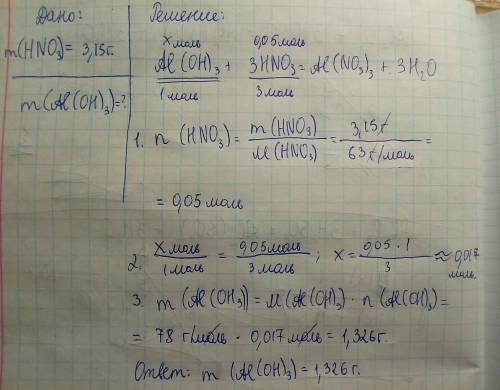 Дано:
m(HNO₃) = 3,15г.
m(Al(OH)₃)=?
Решение:
x моль 0,05моль
Al(OH)₃ + 3HNO₃ = Al(NO₃)₃ + 3H₂O
1моль 3моль
1. n (HNO₃) = m(HNO₃)/M(HNO₃) = 3,15г/63г/моль =
= 0,05 моль
2. x моль/1 моль = 0,05моль/3 моль ; x = 0,05 · 1/3 ≈ 0,017 моль.
3. m (Al(OH)₃) = M(Al(OH)₃) · n (Al(OH)₃) =
= 78 г/моль · 0,017 моль = 1,326г
Ответ: m (Al(OH)₃) = 1,326г.